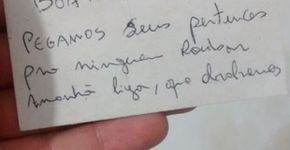 PEGAMOS seus pertences
pra ninguem Roubar
amanhã liga, que devolvemos